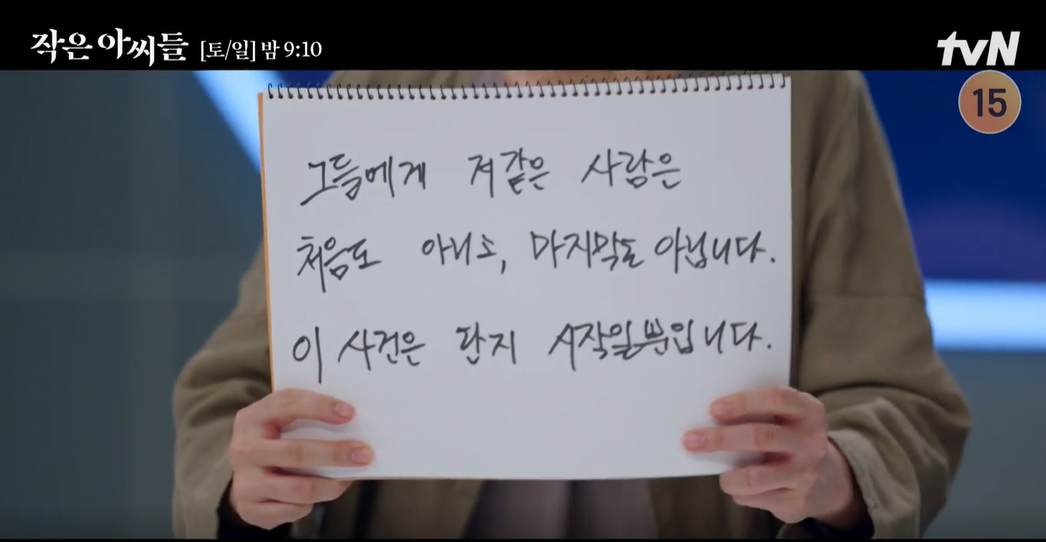 작은 아씨들 [토/일] 밤 9:10
tvN
15
그들에게 저같은 사람은
처음도 아니고, 마지막도 아닙니다.
이 사건은 단지 시작일뿐입니다.